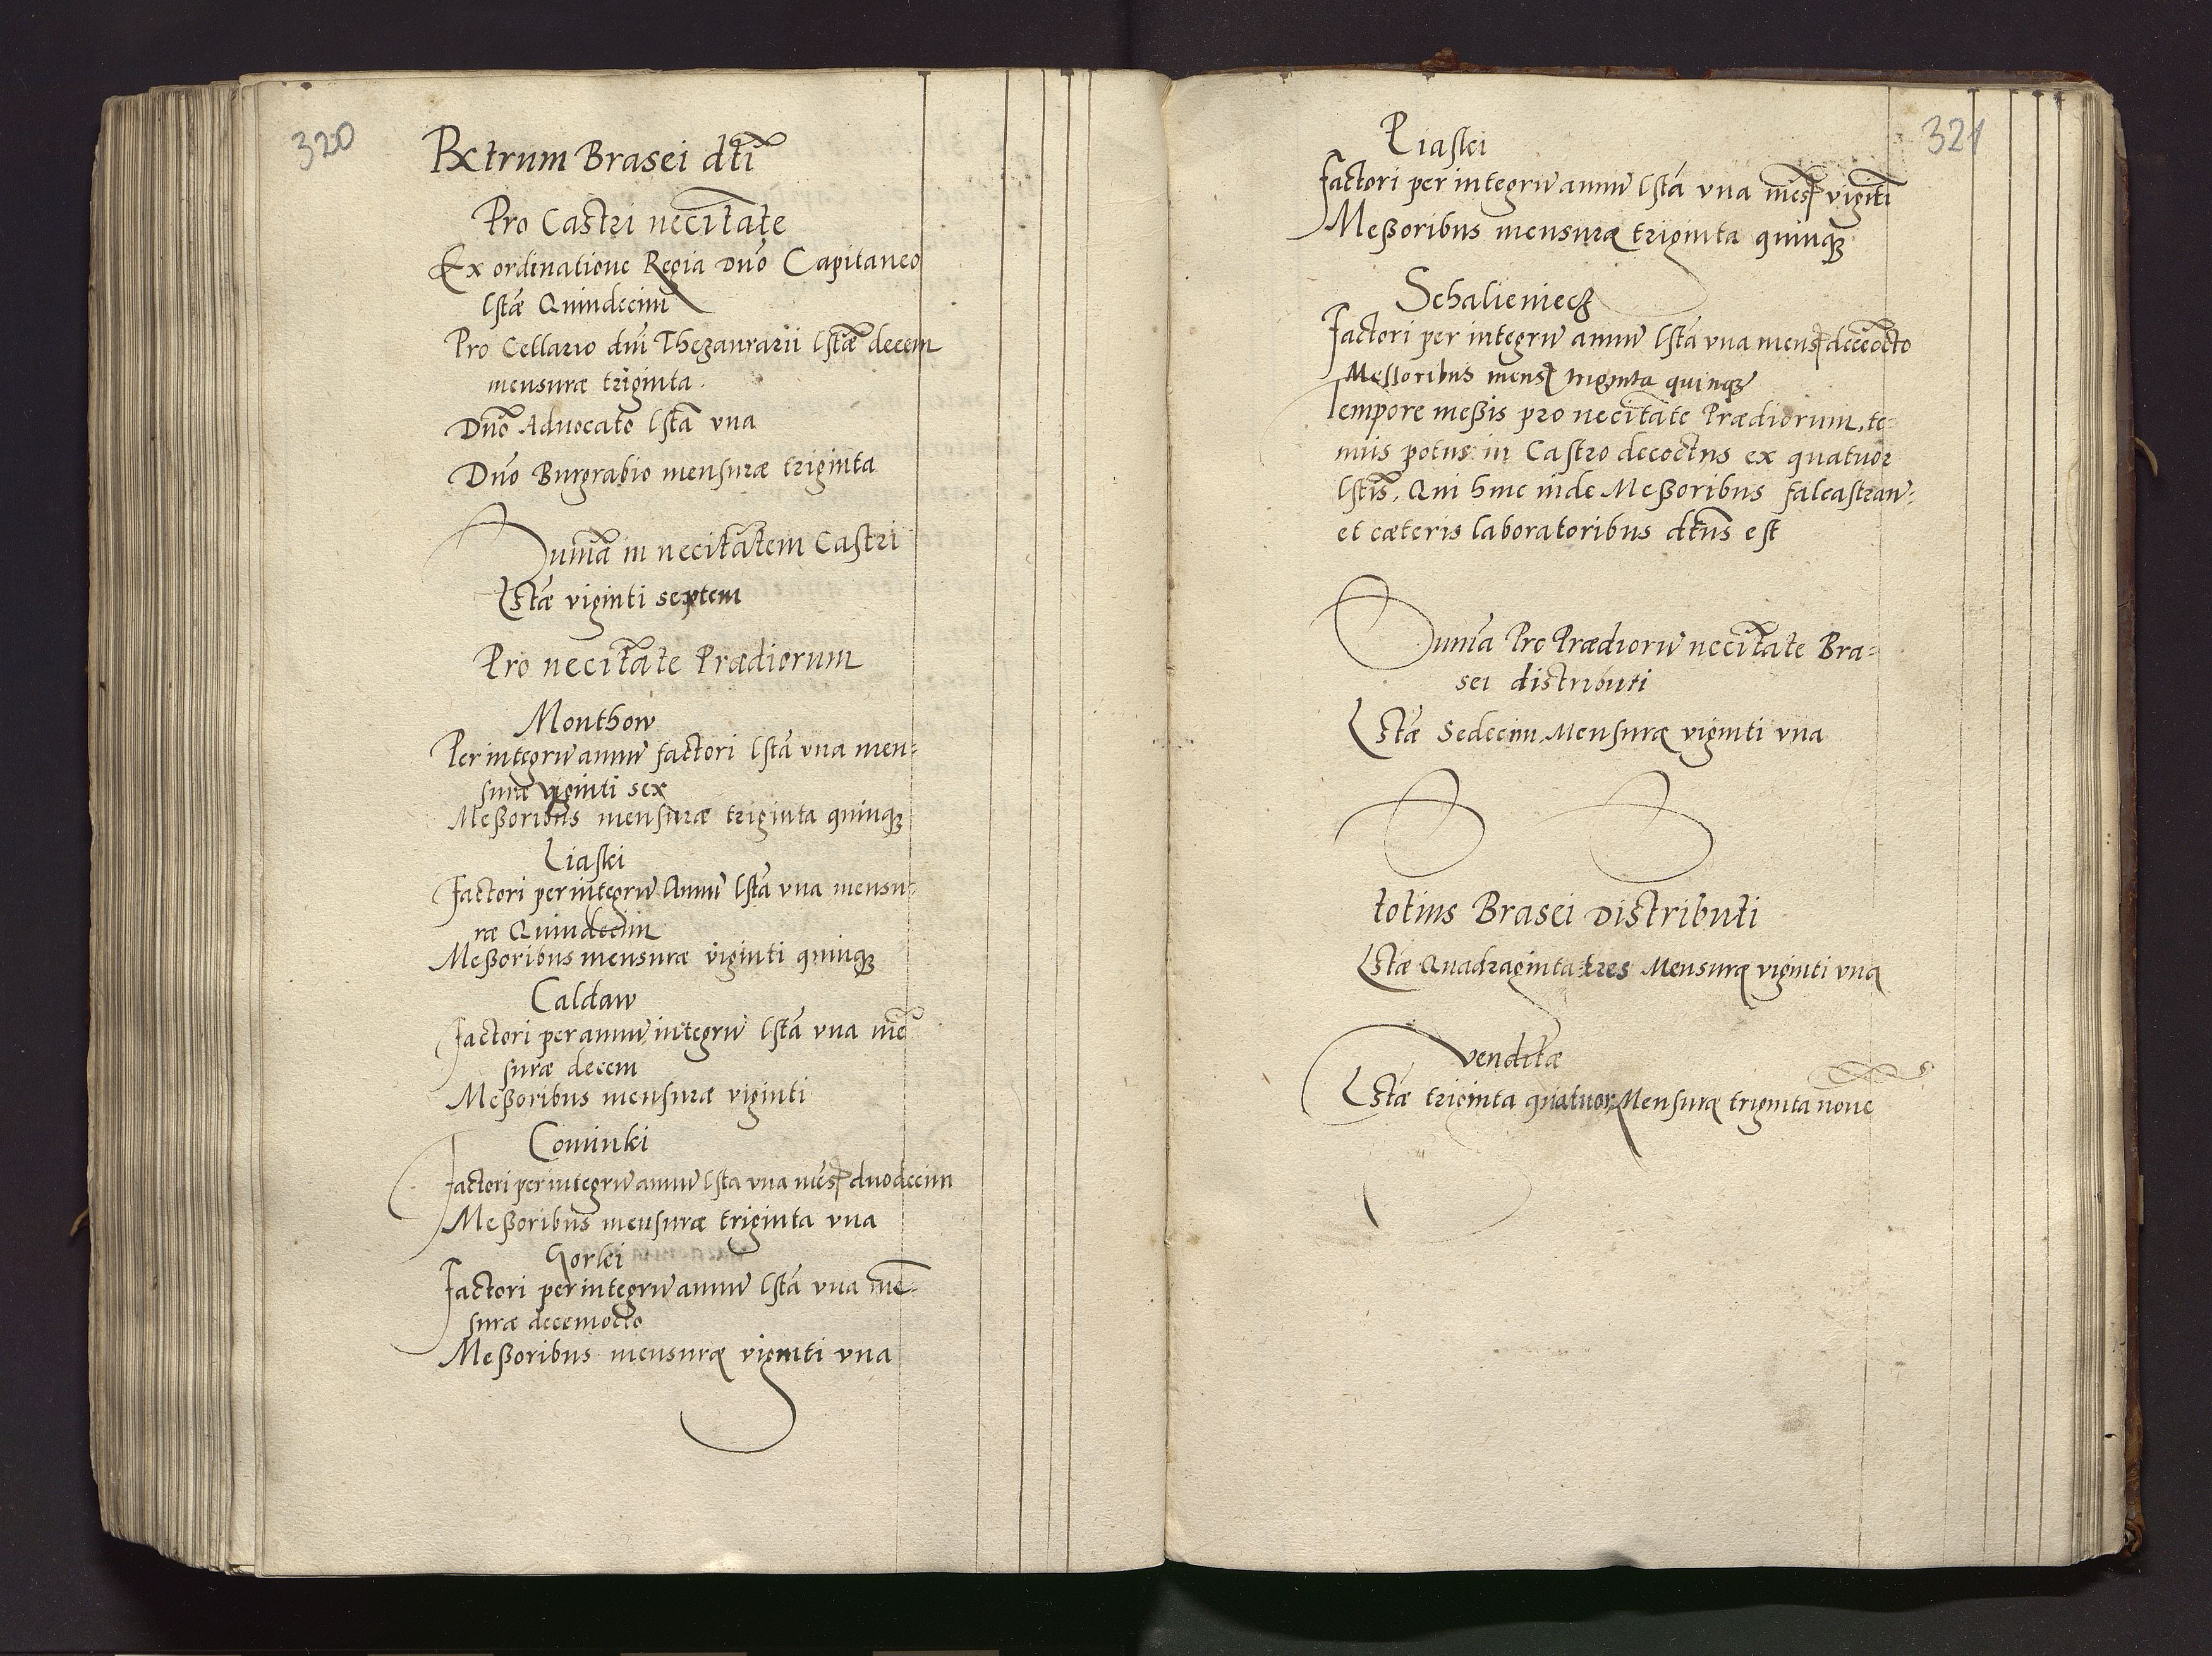 320
Rxtrum Brasei dti
Pro Castri necitate
Ex ordinatione Regia Dno Capitaneo
lstæ Quindecim
Pro Cellario dni Thezaurarii lstæ decem
mensuræ triginta.
Dno Advocato lsta vna
Dno Burgrabio mensuræ triginta
Suma in necitatem Castri
Lstæ viginti septem
Pro necitate Prædiorum
Monthow
Per integrū annū factori lsta vna men=
suræ viginti sex
Meßoribus mensuræ triginta quinqꝫ
Liaski
Factori per integrū Annū lsta vna mensu=
ræ Quindecim
Meßoribus mensuræ viginti quinqꝫ
Caldaw
Factori per annū integrū lsta vna mē
suræ decem
Meßoribus mensuræ viginti
Cominki
Factori per integrū annū lsta vna mēs duodecim
Meßoribus mensuræ triginta vna
Gorki
Factori per integrū annū lsta vna mē=
suræ decemocto
Meßoribus mensuræ viginti vna
321
Piaski
Factori per integrū annū lsta vna mēs vigiti
Meßoribus mensuræ triginta quinqꝫ
Schalieniecz
Factori per integrū annū lsta vna mens decēocto
Messoribus mens triginta quinqꝫ
Tempore meßis pro necitate Prædiorum, te=
nuis potus in Castro decoctus ex quatuor
lstis, Qui hinc inde Meßoribus falcastran:
et cæteris laboratoribus dtus est
Suma Pro Prædiorū necitate Bra=
sei distributi
Lstæ Sedecim Mensuræ viginti vna
totius Brasei Distributi
Lstæ Quadraginta tres Mensuræ viginti vna
venditæ
Lstæ triginta quatuor Mensuræ triginta nove